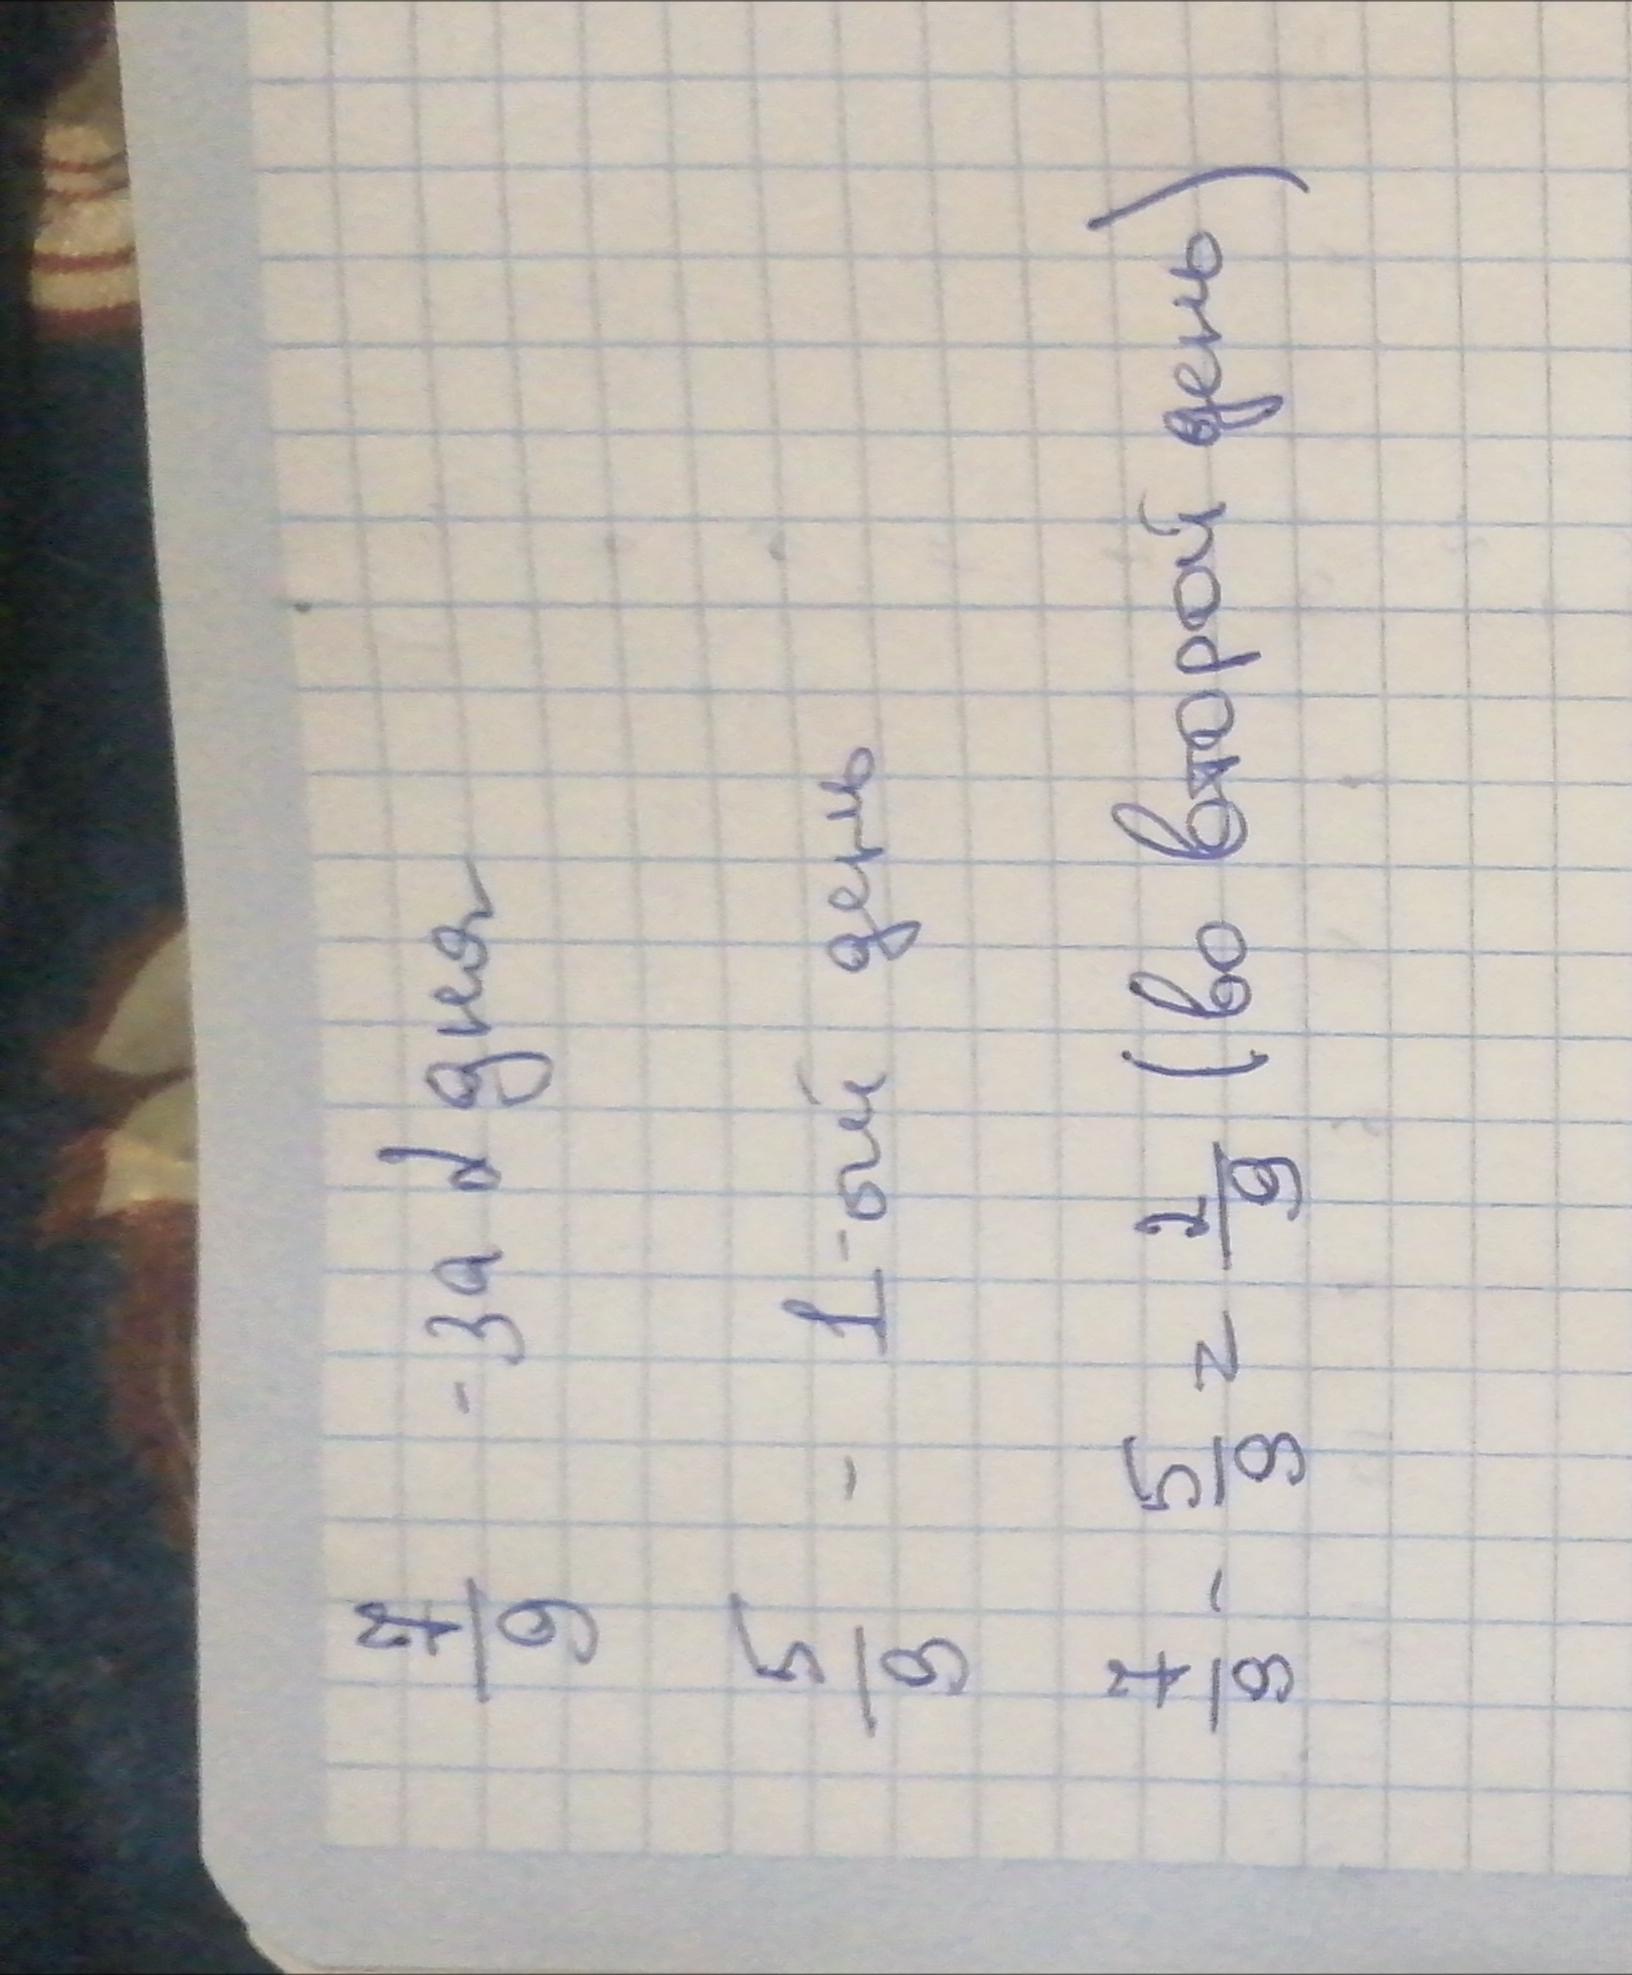 7/9 - за 2 дня
5/9 - 1-ый день
7/9 - 5/9 = 2/9 (во второй день)